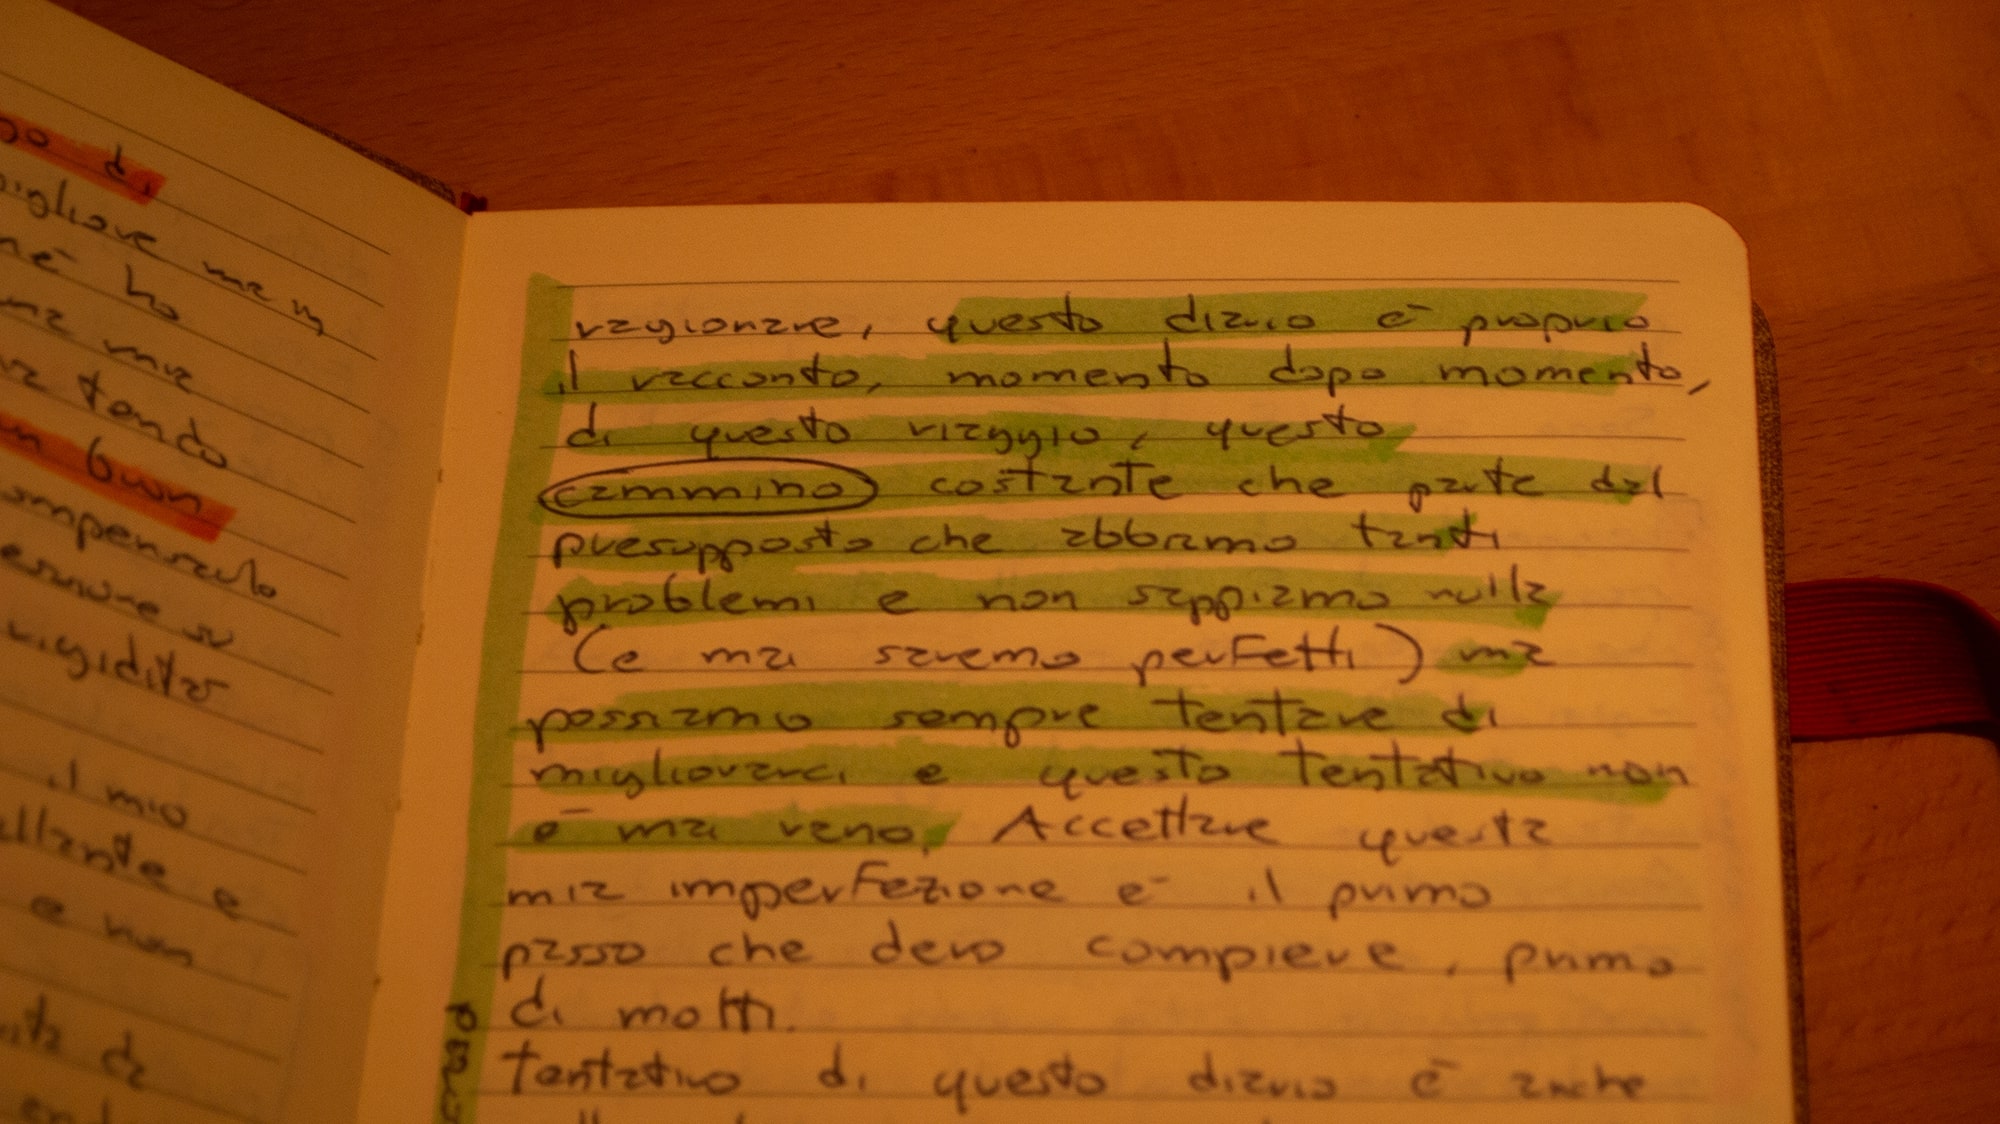 di
migliore ma m
ho
ma mia
tendo
un buon
compensarlo
su
rigidità
il mio
e
e non
da
ragionare, questo diario è proprio
il racconto, momento dopo momento,
di questo viaggio, questo
cammino costante che parte dal
presupposto che abbiamo tanti
problemi e non sappiamo nulla
(e mai saremo perfetti) ma
possiamo sempre tentare di
migliorarci e questo tentativo non
è mai vano. Accettare questa
mia imperfezione è il primo
passo che devo compiere, primo
di molti.
tentativo di questo diario è anche